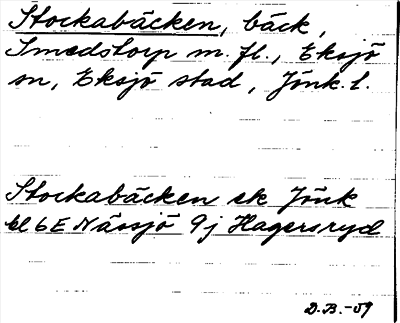 Stockabäcken, bäck,
Smedstorp m. fl., Eksjö
sn, Eksjö stad, Jönk. l.
Stockabäcken ek Jönk
bl 6E Nässjö 9j Hagersryd
D.B.-59